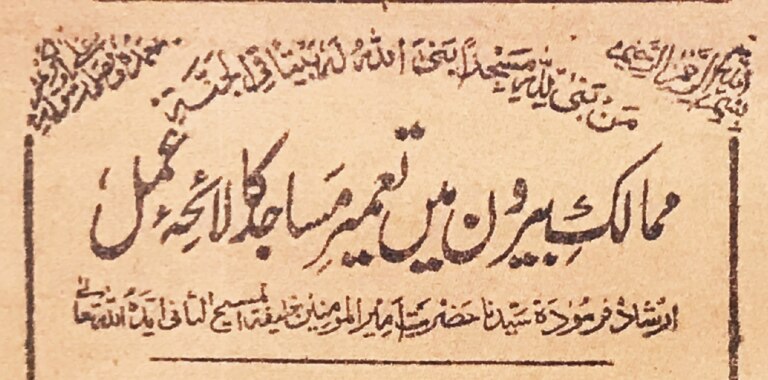 بسم اللہ الرحمن الرحیم
مَنْ بَنٰی لِلّٰہِ مَسْجِدًا بَنَی اللّٰہُ لَہٗ بَیْتًا فِی الْجَنَّۃِ
ممالکِ بیرون میں تعمیرِ مساجد کا لائحۂ عمل
ارشاد فرمودہ سیّدنا حضرت امیر المومنین خلیفۃ المسیح الثانی ایدہ اللہ تعالیٰ